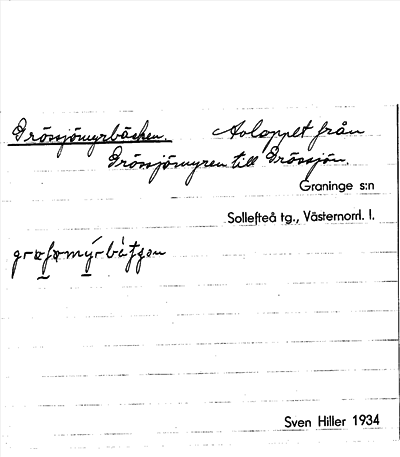 Drössjömyrbäcken. Avloppet från
Drössjömyren till Drössjön.
Graninge s:n
Sollefteå tg., Västernorrl. l.
Sven Hiller 1934